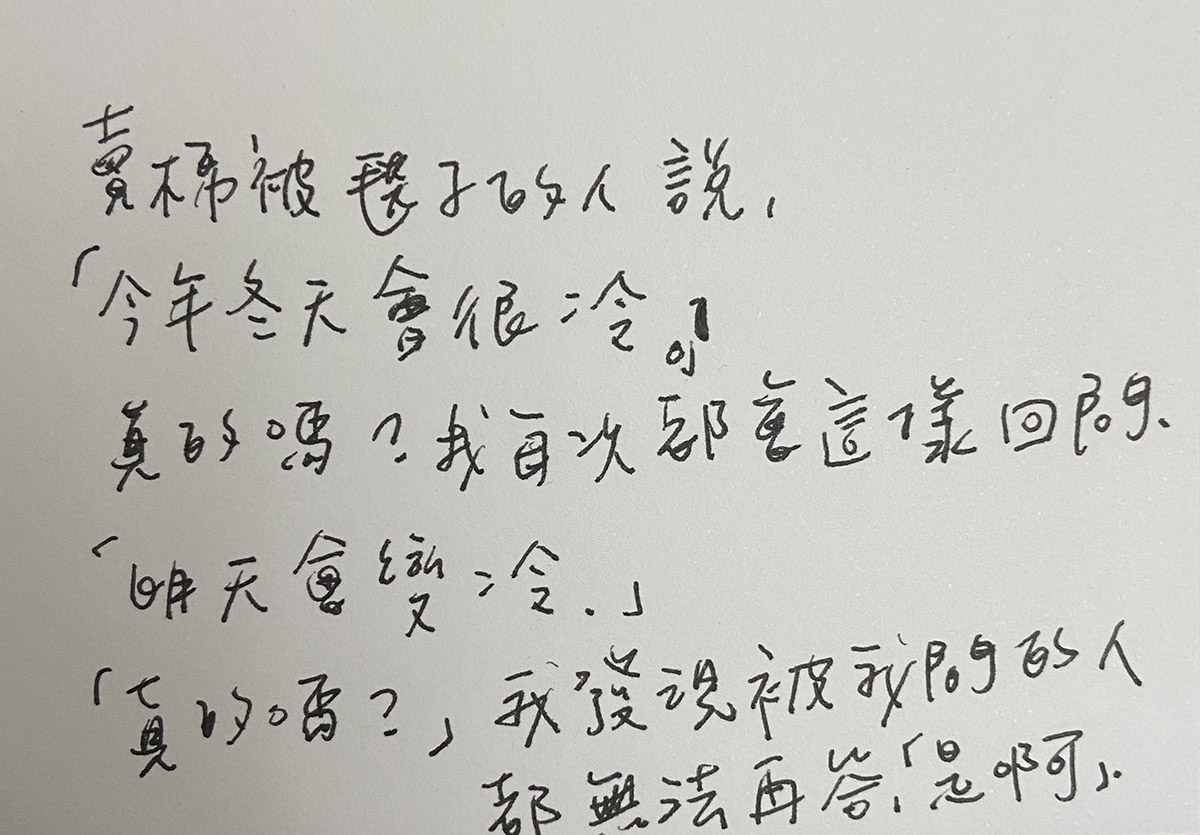 賣棉被毯子的人說，
「今年冬天會很冷。」
真的嗎？我每次都會這樣回問、
「明天會變冷．」
「真的嗎？」我發現被我問的人
都無法再答「是啊」．